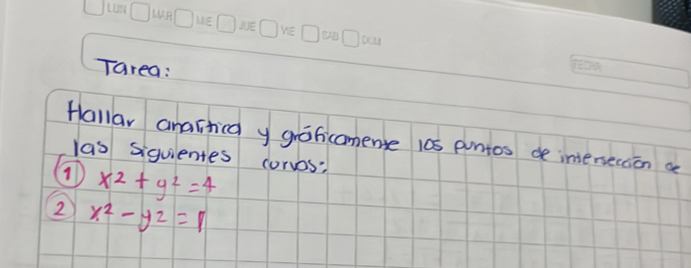 LUN MAR MIE JUE VIE SAB DOM
FECHA
Tarea:
Hallar analítica y gráficamente los puntos de intersección de
las siguientes curvas:
① x² + y² = 4
② x² - y² = 1